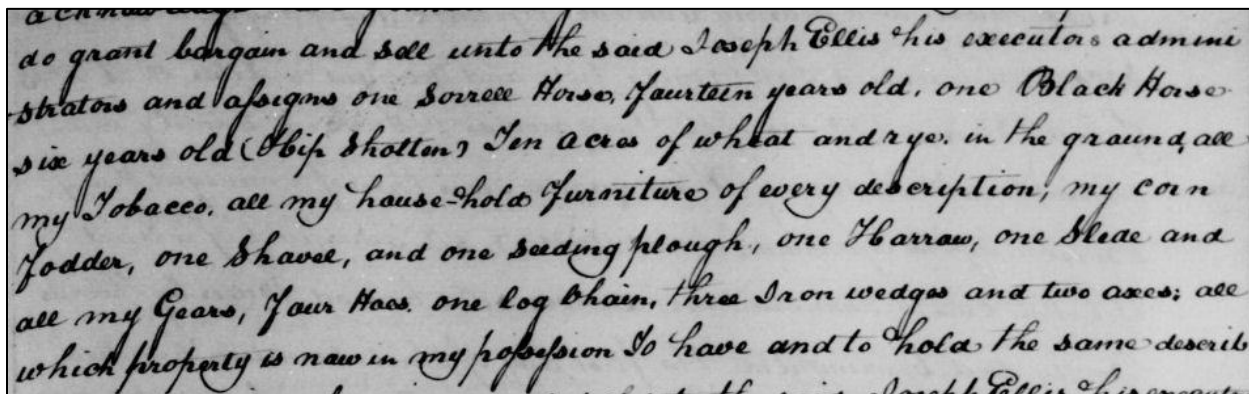 do grant bargain and sell unto the said Joseph Ellis his executors admini
strators and assigns one Sorrell Horse, Fourteen years old, one Black Horse
six years old (Hip Sholten) Ten acres of wheat and rye. in the ground, all
my Tobacco, all my house-hold furniture of every description, my corn
Fodder, one Shovel, and one seeding plough, one Harrow, one Slede and
all my Gears, Four Hoes. one log Chain, three Iron wedges and two axes; all
which property is now in my possession To have and to hold the same describ
the said Joseph Ellis his